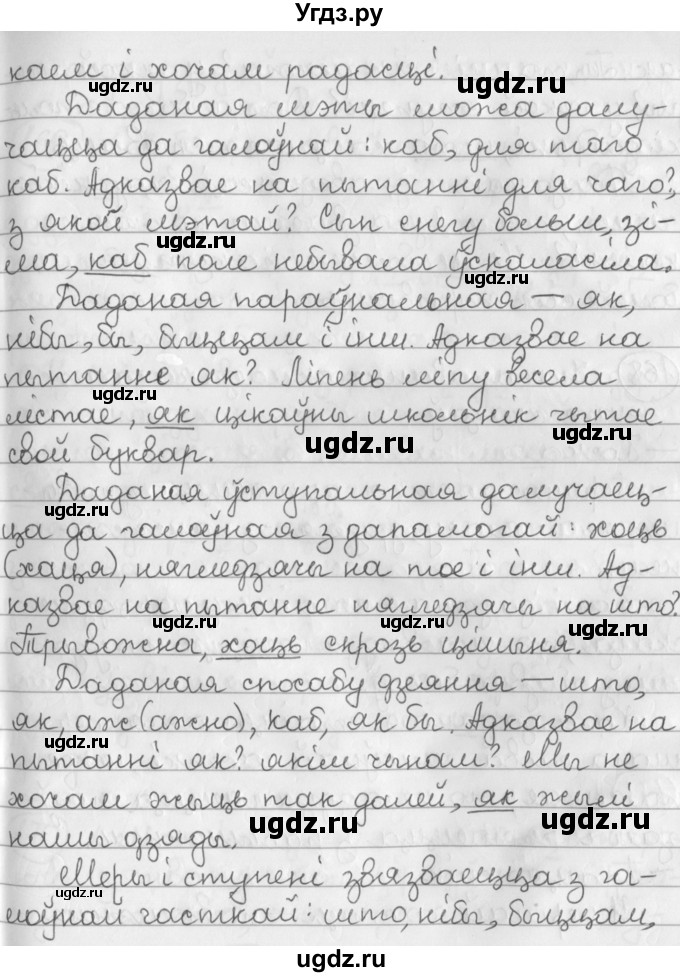 Угдз.ру
каем і хочам радасці.
Даданая мэты можа далу-
чацца да галоўнай: каб, для таго
каб. Адказвае на пытанні для чаго?,
з якой мэтай? Сып снегу больш, зі-
ма, каб поле небывала ўскаласіла.
Даданая параўнальная – як,
нібы, бы, быццам і інш. Адказвае на
пытанне як? Ліпень ліпу весела
лістае, як цікаўны школьнік чытае
свой буквар.
Даданая ўступальная далучаец-
ца да галоўная з дапамогай: хоць
(хаця), нягледзячы на тое і інш. Ад-
казвае на пытанне нягледзячы на што?
Трывожна, хоць скрозь цішыня.
Даданая спосабу дзеяння – што,
як, аж (ажно), каб, як бы. Адказвае на
пытанні як? якім чынам? Мы не
хочам жыць так далей, як жылі
нашы дзяды.
Меры і ступені звязваецца з га-
лоўнай часткай: што, нібы, быццам,
ugdz.ru